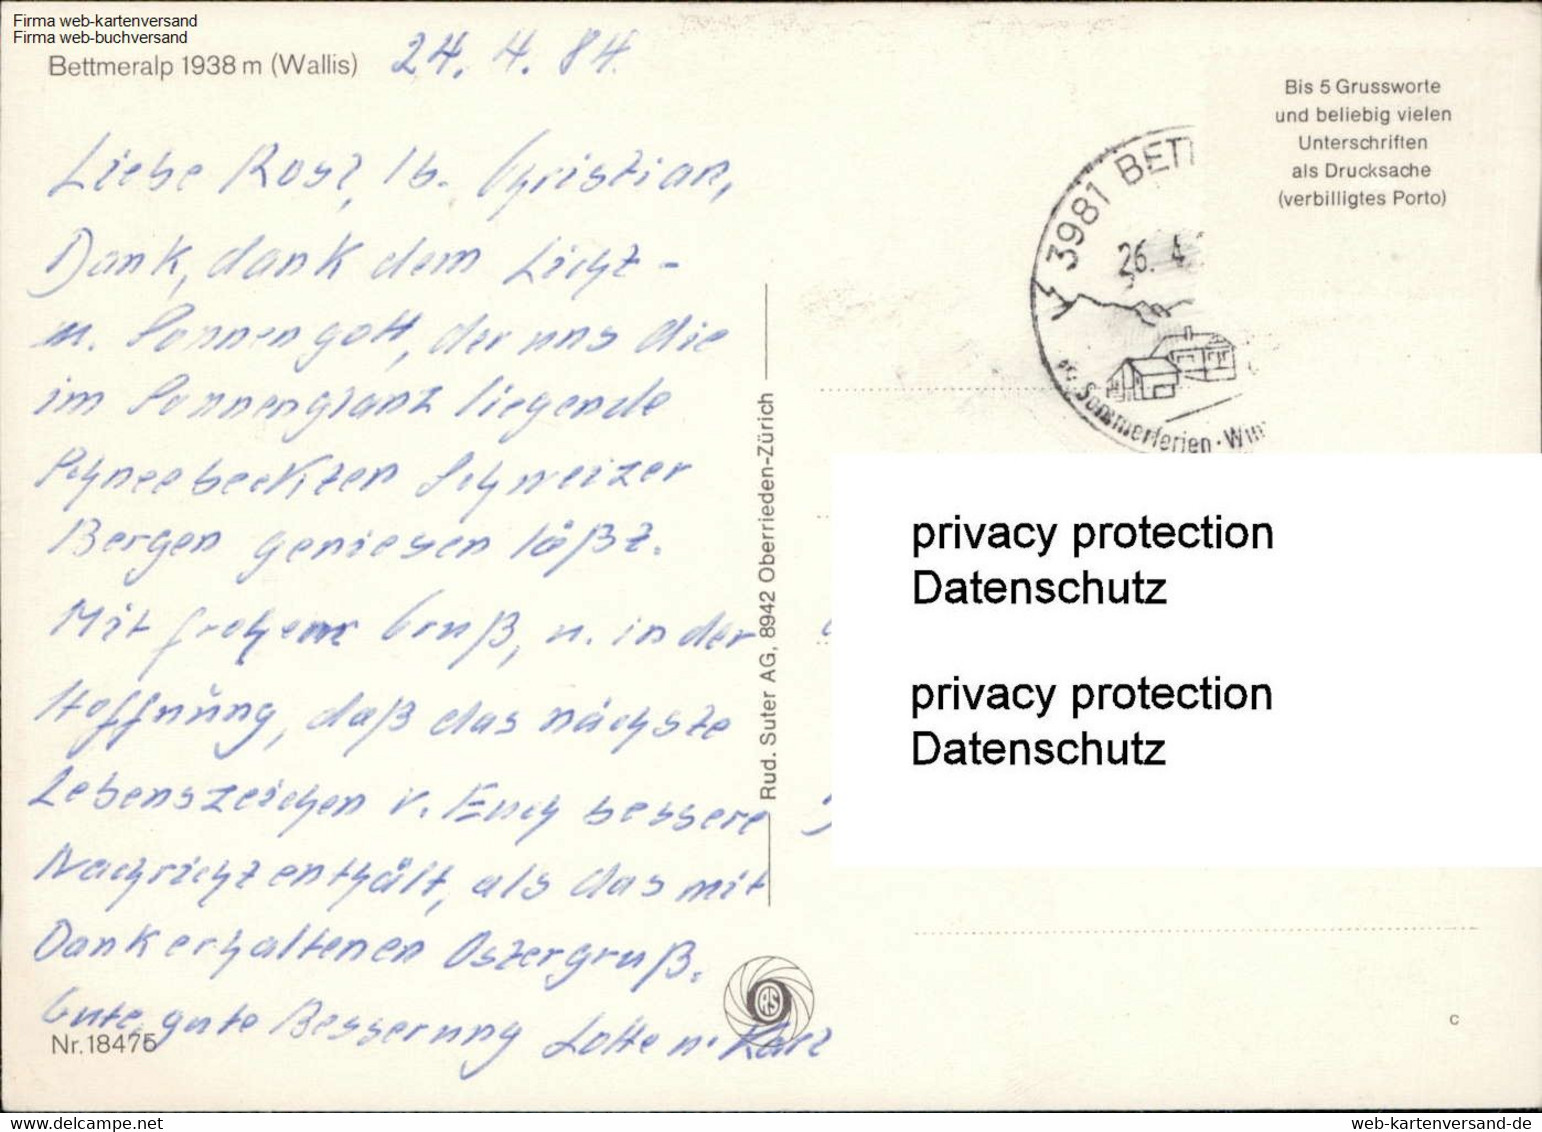 Firma web-kartenversand
Firma web-buchversand
Bettmeralp 1938 m (Wallis)
24. 4. 84.
Liebe Rosl, lb. Christian,
Dank, dank dem Licht-
u. Sonnengott, der uns die
im Sonnenglanz liegende
Schneebeckten Schweizer
Bergen geniesen läßt.
Mit frohem Gruß, u. in der
Hoffnung, daß das nächste
Lebenszeichen v. Euch bessere
Nachricht enthält, als das mit
Dank erhaltenen Ostergruß.
Gute, gute Besserung Lotte u. Karl
Nr. 18475
Rud. Suter AG, 8942 Oberrieden-Zürich
RS
Bis 5 Grussworte
und beliebig vielen
Unterschriften
als Drucksache
(verbilligtes Porto)
3981 BETT
26. 4.
Sommerferien · Win
privacy protection
Datenschutz
privacy protection
Datenschutz
c
hosted on www.delcampe.net
web-kartenversand & web-kartenversand.de